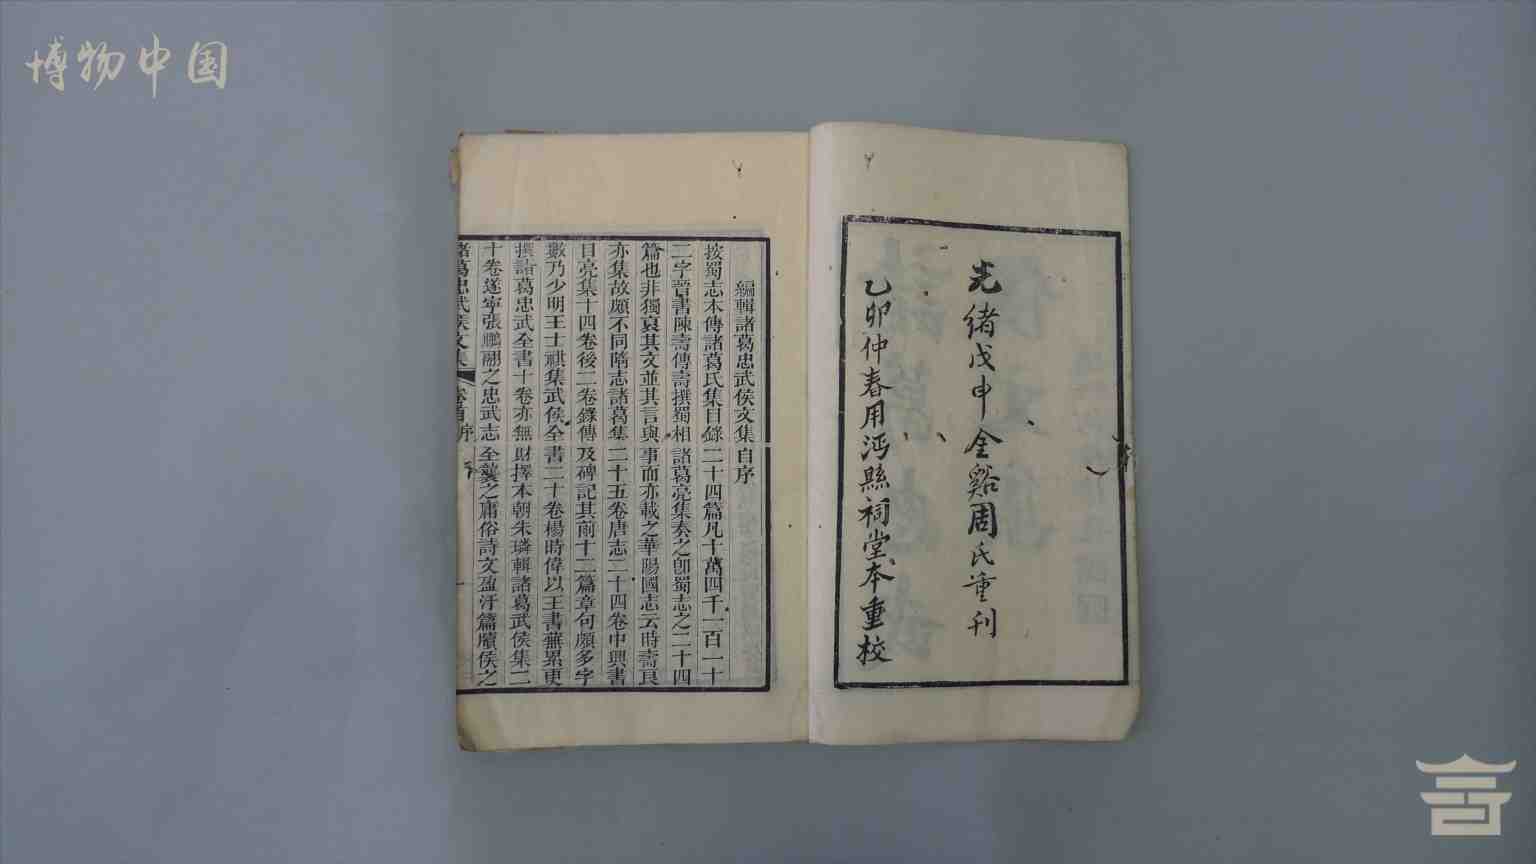 博物中国
光緒戊申金谿周氏重刊
乙卯仲春用沔縣祠堂本重校
編輯諸葛忠武侯文集自序
按蜀志本傳諸葛氏集目錄二十四篇凡十萬四千一百一十
二字晉書陳壽傳壽撰蜀相諸葛亮集奏之卽蜀志之二十四
篇也非獨裒其文並其言與事而亦載之華陽國志云時壽良
亦集故頗不同隋志諸葛集二十五卷唐志二十四卷中興書
目亮集十四卷後二卷錄傳及碑記其前十二篇章句頗多字
數乃少明王士騏集武侯全書二十卷楊時偉以王書蕪累更
撰諸葛忠武全書十卷亦無財擇本朝朱璘輯諸葛武侯集二
十卷遂寧張鵬翮之忠武志全襲之庸俗詩文盈汙篇牘侯之
諸葛忠武侯文集 卷首 序